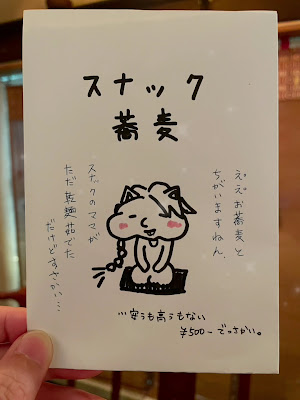 スナック
蕎麦
ええお蕎麦と
ちがいますねん、
スナックのママが
ただ乾麺茹でた
だけどすさかい…
安うも高うもない
¥500-でっさかい。